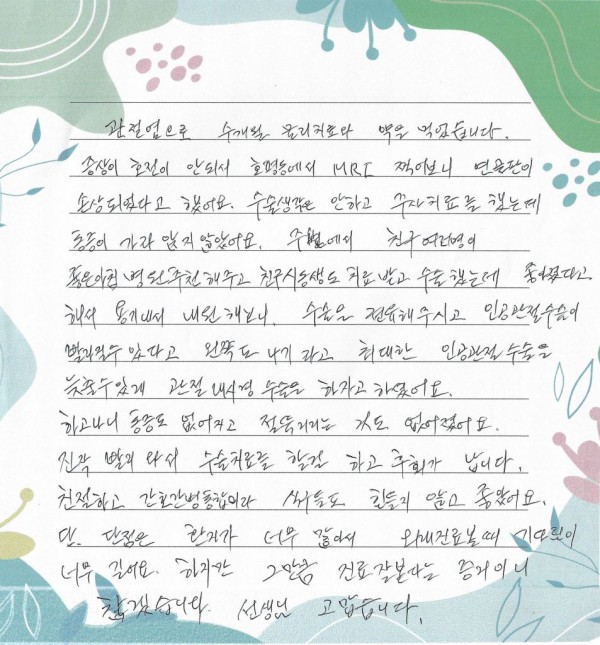 관절염으로 수개월 물리치료와 약을 먹었습니다.
증상이 호전이 안되서 호평동에서 MRI 찍어보니 연골판이
손상되었다고 했어요. 수술생각은 안하고 주사치료를 했는데
통증이 가라 앉지 않았어요. 주변에서 친구 여러명이
좋은아침 병원 추천 해주고 친구시동생도 치료 받고 수술 했는데 좋아졌다고
해서 용기내서 내원해보니. 수술을 권유해주시고 인공관절수술이
빨라질수 있다고 왼쪽도 나가 라고 최대한 인공관절 수술을
늦출수있게 관절 내시경 수술을 하자고 하였어요.
하고나니 통증도 없어지고 절뚝거리는 것도 없어졌어요.
진작 빨리 와서 수술치료를 할걸 하고 후회가 납니다.
친절하고 간호간병통합이라 써들도 힘들지 않고 좋았어요.
단, 단점은 환자가 너무 많아서 외래진료볼때 기다림이
너무 길어요. 하지만 그만큼 진료 잘본다는 증거이니
참겠습니다. 선생님 고맙습니다.